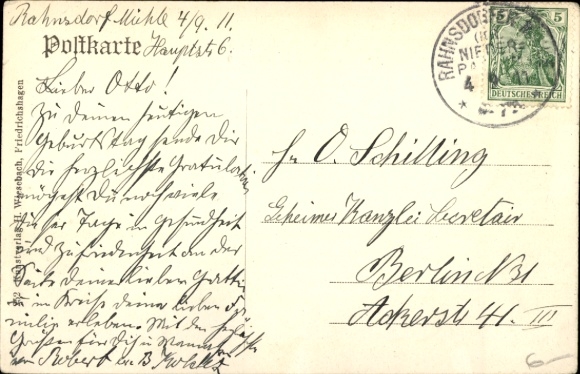 Rahnsdorf Mühle 4/9. 11.
Postkarte Hauptstr 6.
Lieber Otto!
Zu Deinem heutigen
Geburtstag sende Dir
die herzlichste Gratulation
mögest Du noch viele
dieser Tage in Gesundheit
und Zufriedenheit an der
Seite Deiner lieben Gattin
u im Kreise deiner lieben Fa-
milie erleben. Mit den
Grüßen für Dich u
Robert
H. Wiesebach, Friedrichshagen
RAHNSDORF
NIEDER
4
5
DEUTSCHES REICH
Hr O. Schilling
Geheimer Kanzlei Secretair
Berlin N 31
Ackerstr 41. III
6-